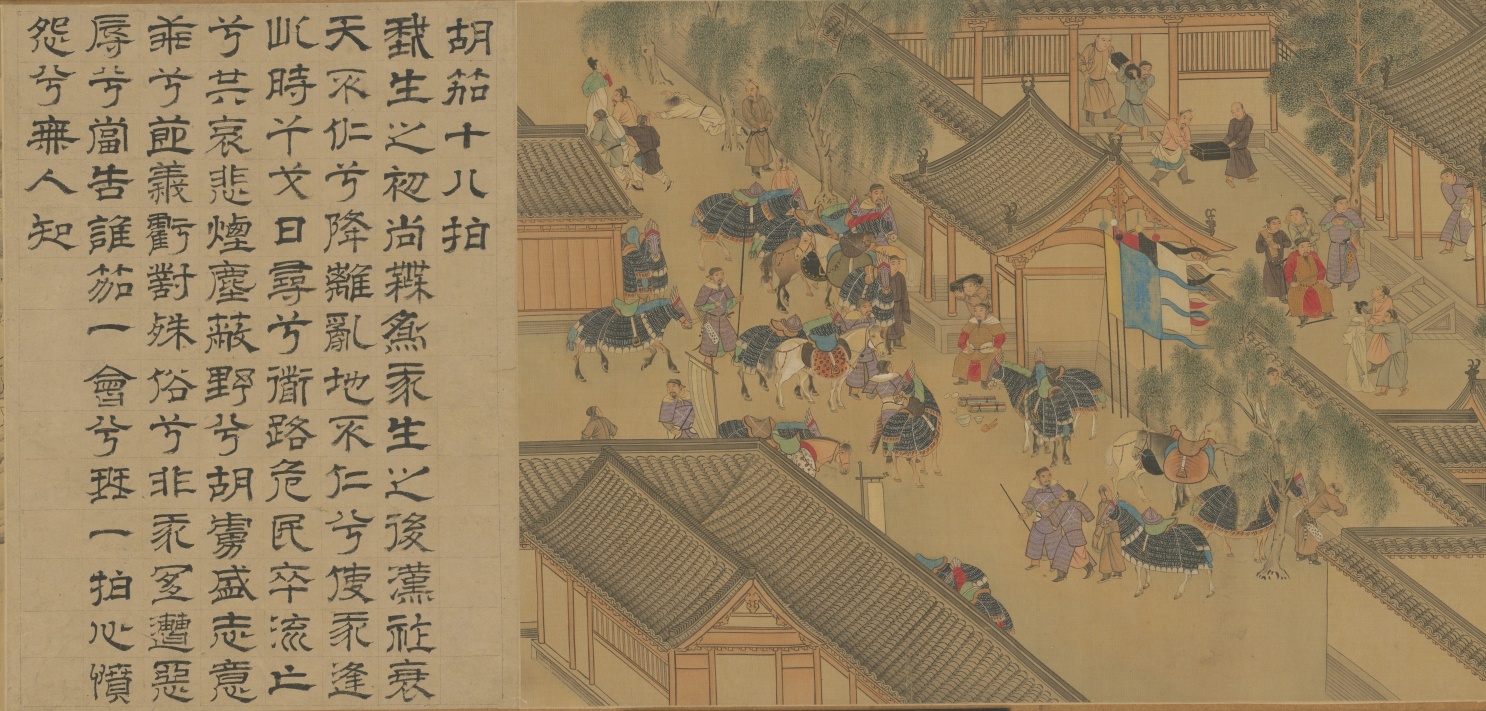 胡笳十八拍
我生之初尚無為我生之後漢祚衰
天不仁兮降離亂地不仁兮使我逢
此時干戈日尋兮衟路危民卒流亡
兮共哀悲煙塵蔽野兮胡虜盛志意
乖兮節義虧對殊俗兮非我宜遭惡
辱兮當告誰笳一會兮琴一拍心憤
怨兮無人知